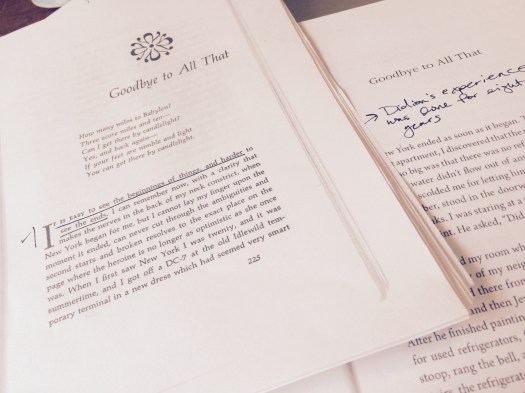 Goodbye to All That
How many miles to Babylon?
Three score miles and ten—
Can I get there by candlelight?
Yes, and back again—
If your feet are nimble and light
You can get there by candlelight.
IT IS EASY to see the beginnings of things, and harder to
see the ends. I can remember now, with a clarity that
makes the nerves in the back of my neck constrict, when
New York began for me, but I cannot lay my finger upon the
moment it ended, can never cut through the ambiguities and
second starts and broken resolves to the exact place on the
page where the heroine is no longer as optimistic as she once
was. When I first saw New York I was twenty, and it was
summertime, and I got off a DC-7 at the old Idlewild tem-
porary terminal in a new dress which had seemed very smart
225
Goodbye to All That
→ Didion's experience
was done for eight
years
York ended as soon as it began.
apartment, I discovered that the
so big was that there was no ref
water didn't flow out of
scolded me for letting him
stood in the doorw
I was staring at
He asked, "Did
my room wh
of my neig
there from
then Je
After he finished paintin
for used refrigerators,
stoop, rang the bell, a
the refrigerator